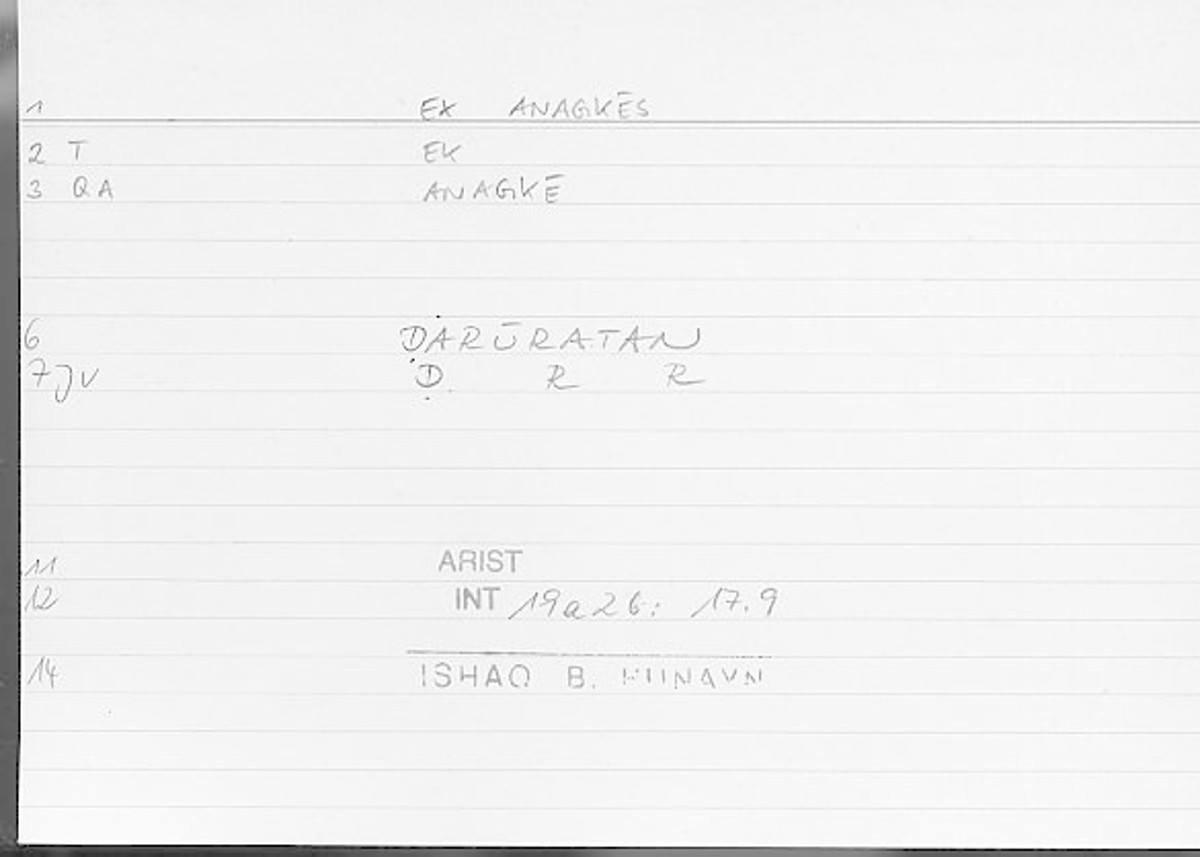 1 EX ANAGKĒS
2 T EK
3 QA ANAGKĒ
6 ḌARŪRATAN
7 JV Ḍ R R
11 ARIST
12 INT 19a26: 17.9
14 ISHAQ B. HUNAYN